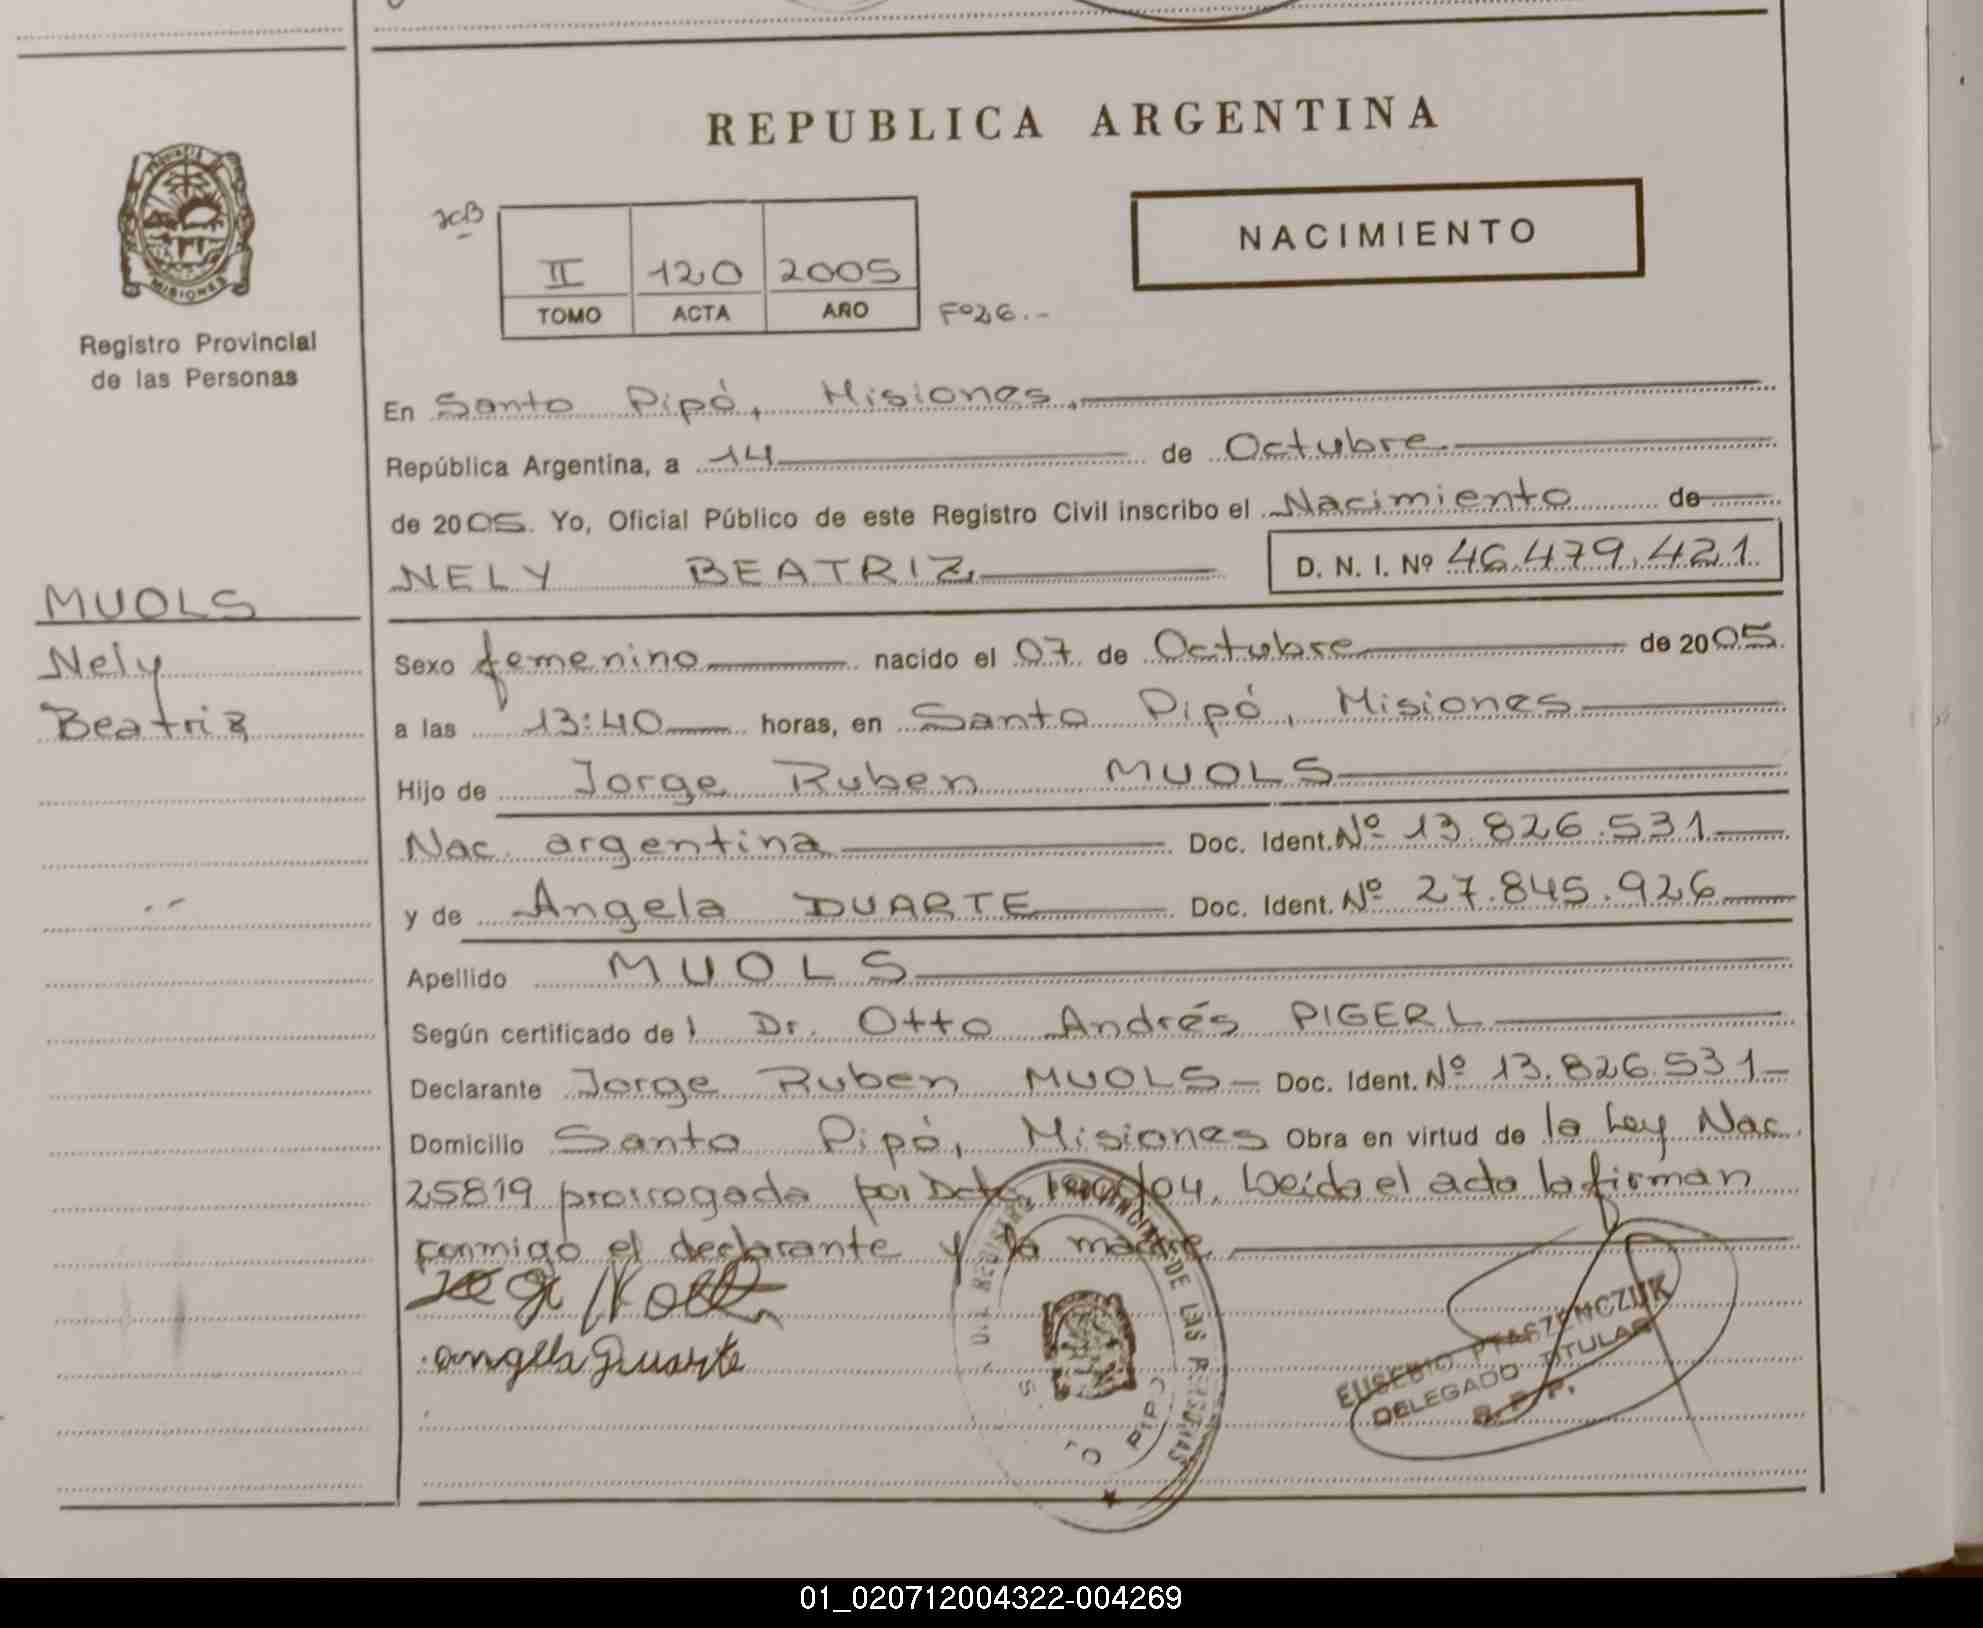 REPUBLICA ARGENTINA
MISIONES
Registro Provincial
de las Personas
JCB
II 120 2005
TOMO ACTA AÑO
Fº26.-
NACIMIENTO
En Santo Pipó, Misiones,
República Argentina, a 14 de Octubre
de 2005. Yo, Oficial Público de este Registro Civil inscribo el Nacimiento de
NELY BEATRIZ D. N. I. Nº 46.479.421
MUOLS
Nely
Beatriz
Sexo femenino nacido el 07 de Octubre de 2005.
a las 13:40 horas, en Santo Pipó, Misiones
Hijo de Jorge Ruben MUOLS
Nac. argentina Doc. Ident. Nº 13.826.531
y de Angela DUARTE Doc. Ident. Nº 27.845.926
Apellido MUOLS
Según certificado de l Dr. Otto Andrés PIGERL
Declarante Jorge Ruben MUOLS Doc. Ident. Nº 13.826.531
Domicilio Santo Pipó, Misiones Obra en virtud de la Ley Nac.
25819 prorrogada por Dcto. Leida el acta la firman
conmigo el declarante y la madre
angela Duarte
DE LAS PERSONAS
PIPO
EUSEBIO PTASZENCZUK
DELEGADO TITULAR
R. P. P.
01_020712004322-004269